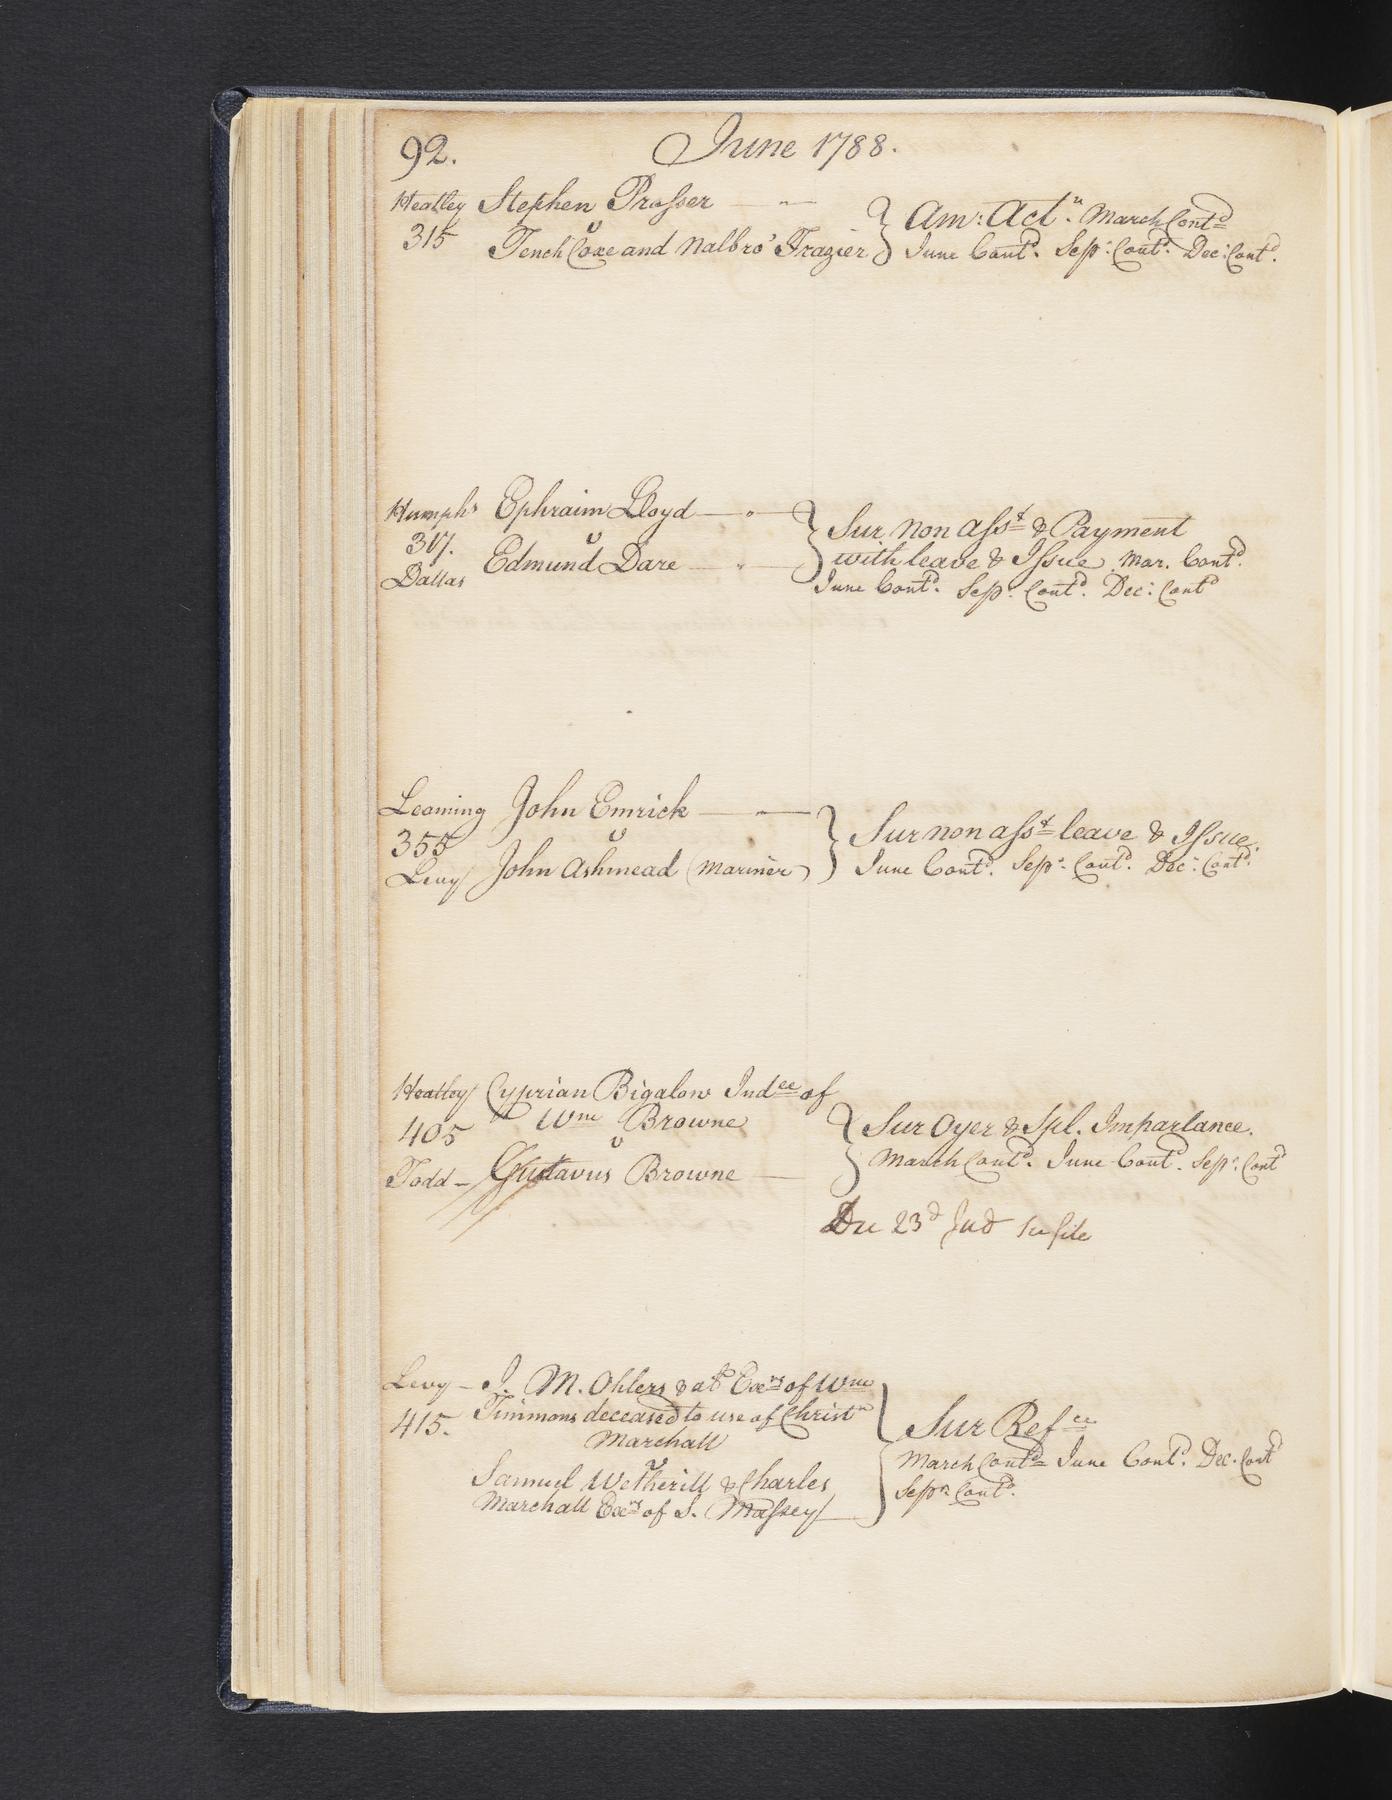 92.
June 1788.
Heatley Stephen Prosser
315 v
Tench Coxe and Nalbro' Frazier
Am: Actn. March Contd
June Contd. Sepr. Contd. Dec: Contd.
Humphs Ephraim Lloyd
317. v
Dallas Edmund Dare
Sur non Asst & Payment
with leave & Issue Mar. Contd.
June Contd. Sepr. Contd. Dec: Contd
Leaming John Emrick
355 v
Levy John Ashmead (Mariner)
Sur non asst leave & Issue.
June Contd. Sepr. Contd. Dec: Contd.
Heatley Cyprian Bigalow Indee of
405 Wm Browne
v
Todd Gustavus Browne
Sur Oyer & Spl. Imparlance.
March Contd. June Contd. Sepr. Contd
Dec 23d Jud see file
Levy J. M. Ohlers & al Exrs of Wm
415. Timmons deceased to use of Christn
Marshall
v
Samuel Wetherill & Charles
Marshall Exrs of S. Massey
Sur Refce
March Contd June Contd. Dec. Contd
Sepr. Contd.